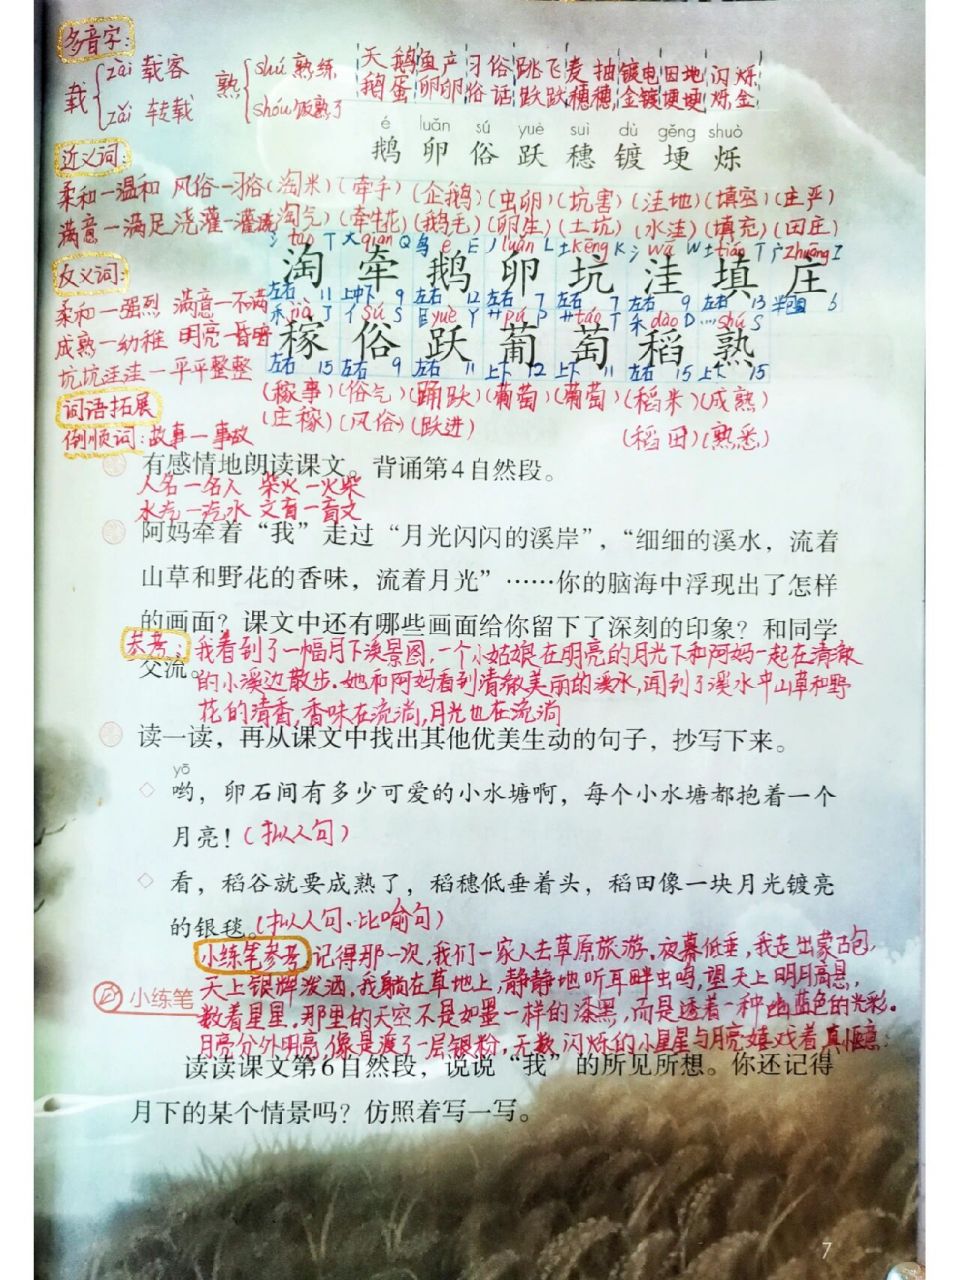 多音字:
载 zài 载客 zǎi 转载 熟 shú 熟练 shóu 饭熟了
天鹅 鱼产卵 习俗 跳跃 飞跃 麦穗 抽穗 镀金 电镀 田地 田埂 闪烁
鹅蛋 卵 俗话 跃 穗 金 埂 烁 金
é luǎn sú yuè suì dù gěng shuò
鹅 卵 俗 跃 穗 镀 埂 烁
近义词:
柔和—温和 风俗—习俗 (淘米)(牵手)(企鹅)(虫卵)(坑害)(洼地)(填空)(庄严)
满意—满足 浇灌—灌溉 (淘气)(牵牛花)(鹅毛)(卵生)(土坑)(水洼)(填充)(田庄)
氵táo T 大qiān Q 鸟é E 丿luǎn L 土kēng K 氵wā W 土tián T 广zhuāng Z
淘 牵 鹅 卵 坑 洼 填 庄
左右 11 上中下 9 左右 12 左右 7 左右 7 左右 9 左右 13 半包围 6
反义词:
柔和—强烈 满意—不满
禾jià J 亻sú S 𧾷yuè Y 艹pú P 艹táo T 禾dào D 灬shú S
成熟—幼稚 明亮—昏暗
稼 俗 跃 葡 萄 稻 熟
坑坑洼洼—平平整整
左右 15 左右 9 左右 11 上下 12 上下 11 左右 15 上下 15
词语拓展
(稼事)(俗气)(踊跃)(葡萄)(葡萄)(稻米)(成熟)
(庄稼)(风俗)(跃进) (稻田)(熟悉)
倒顺词:故事—事故
有感情地朗读课文。背诵第4自然段。
人名—名人 柴火—火柴
水汽—汽水 文盲—盲文
阿妈牵着“我”走过“月光闪闪的溪岸”，“细细的溪水，流着
山草和野花的香味，流着月光”……你的脑海中浮现出了怎样
的画面？课文中还有哪些画面给你留下了深刻的印象？和同学
交流。
参考:我看到了一幅月下溪景图,一个小姑娘在明亮的月光下和阿妈一起在清澈
的小溪边散步.她和阿妈看到清澈美丽的溪水,闻到了溪水中山草和野
花的清香,香味在流淌,月光也在流淌
读一读，再从课文中找出其他优美生动的句子，抄写下来。
yō
哟，卵石间有多少可爱的小水塘啊，每个小水塘都抱着一个
月亮！(拟人句)
看，稻谷就要成熟了，稻穗低垂着头，稻田像一块月光镀亮
的银毯。(拟人句.比喻句)
小练笔参考 记得那一次,我们一家人去草原旅游.夜幕低垂,我走出蒙古包,
小练笔 天上银辉泼洒,我躺在草地上,静静地听耳畔虫鸣,望天上明月高悬,
数着星星.那里的天空不是如墨一样的漆黑,而是透着一种幽蓝色的光彩.
月亮分外明亮,像是渡了一层银粉,无数闪烁的小星星与月亮嬉戏着真惬意.
读读课文第6自然段，说说“我”的所见所想。你还记得
月下的某个情景吗？仿照着写一写。
7